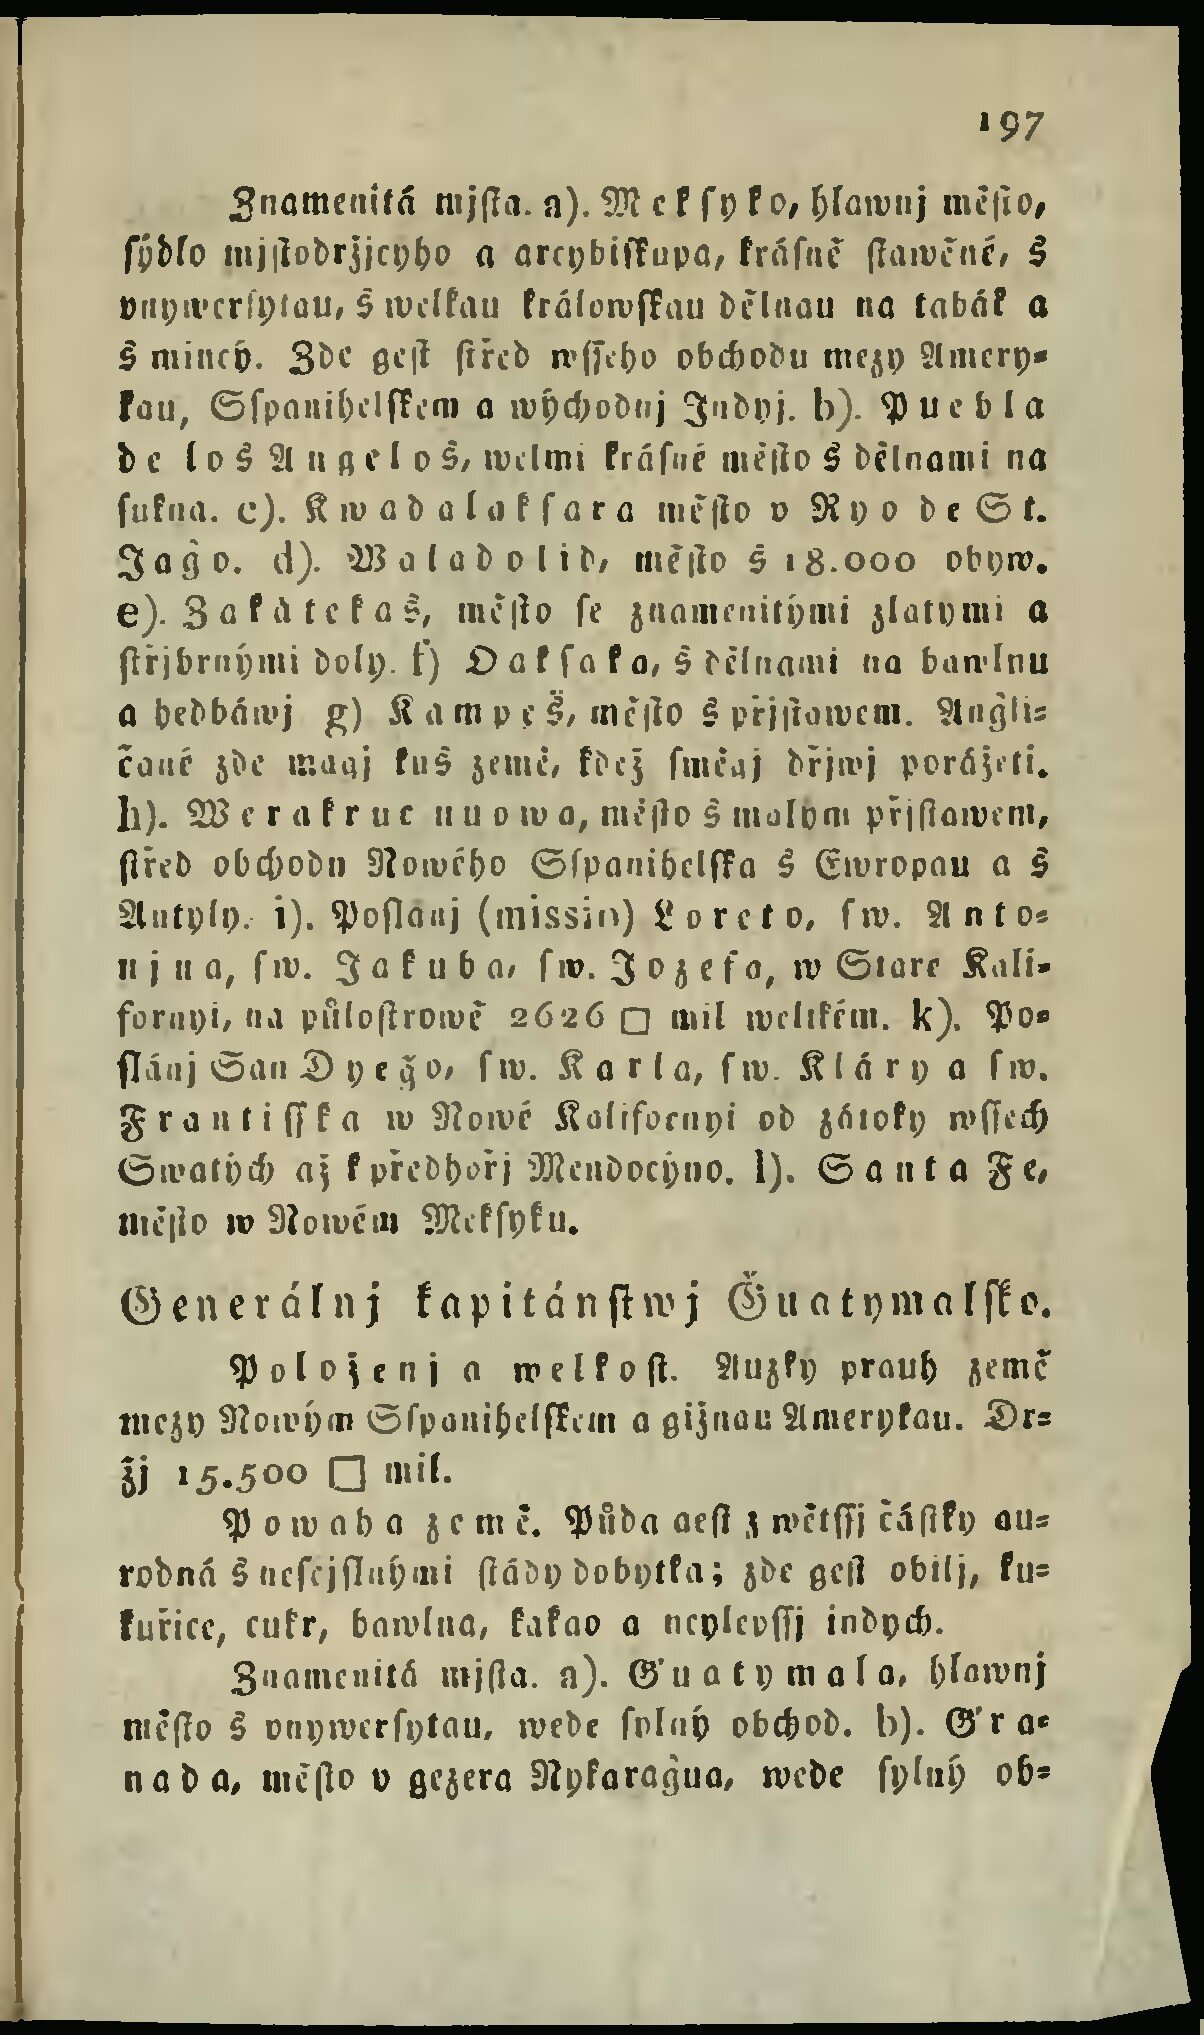 197
Znamenitá mjsta. a). Meksyko, hlawnj město,
sýdlo mjstodržjcyho a arcybiskupa, krásně stawěné, s
vnywersytau, s welkau králowskau dělnau na tabák a
s mincý. Zde gest střed wsseho obchodu mezy Amery-
kau, Sspanihelskem a wýchodnj Indyj. b). Puebla
de los Angelos, welmi krásné město s dělnami na
sukna. c). Kwadalaksara město v Ryo de St.
Jago. d). Waladolid, město s 18.000 obyw.
e). Zakátekas, město se znamenitými zlatymi a
střjbrnými doly. f) Oaksaka, s dělnami na bawlnu
a hedbáwj g) Kampeš, město s přjstawem. Angli-
čané zde magj kus země, kdež směgj dřjwj porážeti.
h). Werakruc nuowa, město s malým přjstawem,
střed obchodu Nowého Sspanihelska s Ewropau a s
Antyly. i). Poslanj (missio) Loreto, sw. Anto-
njna, sw. Jakuba, sw. Jozefa, w Stare Kali-
fornyi, na půlostrowě 2626 □ mil welikém. k). Po-
slánj San Dyego, sw. Karla, sw. Kláry a sw.
Frantisska w Nowé Kalifornyi od zátoky wssech
Swatých až k předhořj Mendocýno. l). Santa Fe,
město w Nowém Meksyku.
Generálnj kapitánstwj Ǧuatymalsko.
Položenj a welkost. Auzký prauh země
mezy Nowým Sspanihelskem a gižnau Amerykau. Dr-
žj 15.500 □ mil.
Powaha země. Půda gest z wětssj částky au-
rodná s nesčjslnými stády dobytka; zde gest obilj, ku-
kuřice, cukr, bawlna, kakao a neylepssj indych.
Znamenitá mjsta. a). Guatymala, hlawnj
město s vnywersytau, wede sylný obchod. b). Gra-
nada, město v gezera Nykaragua, wede sylný ob-